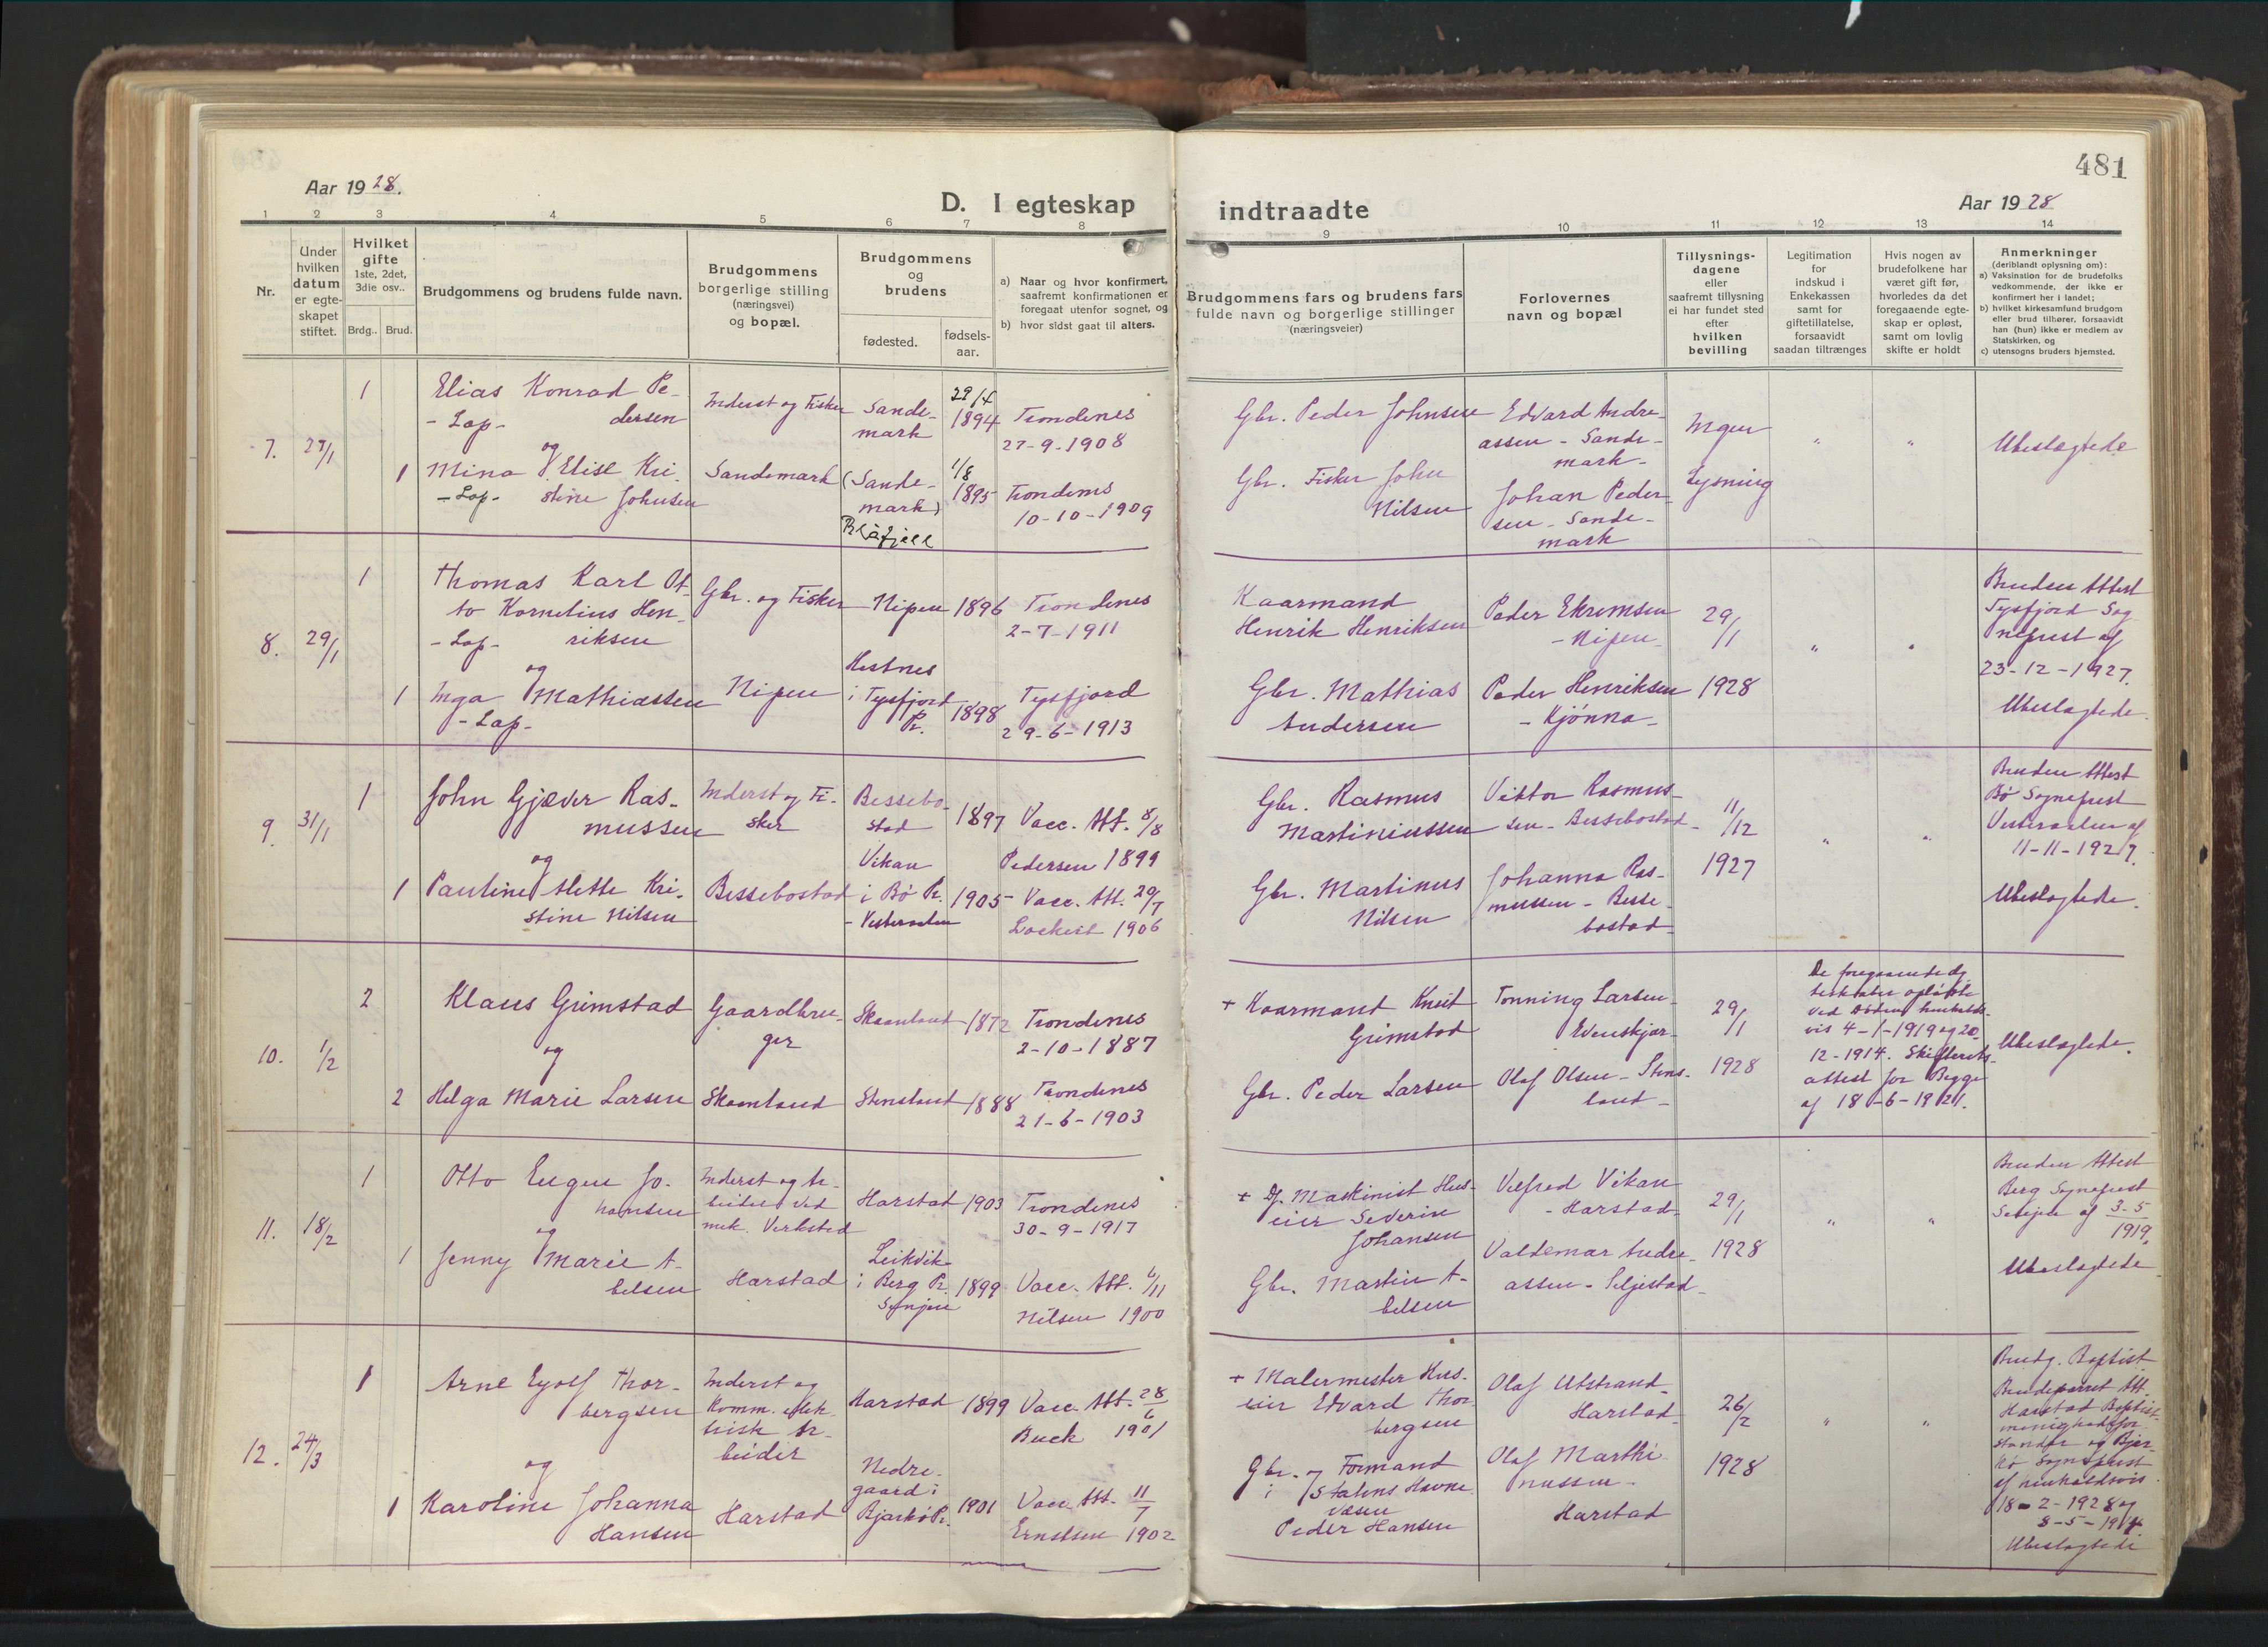 481
Aar 1928.
D. I egteskap
indtraadte
Aar 1928
1 2 3 4 5 6 7 8
9 10 11 12 13 14
Nr.
Under
hvilken
datum
er egte-
skapet
stiftet.
Hvilket
gifte
1ste, 2det,
3die osv..
Brdg.. Brud.
Brudgommens og brudens fulde navn.
Brudgommens
borgerlige stilling
(næringsvei)
og bopæl.
Brudgommens
og
brudens
fødested.
fødsels-
aar.
a) Naar og hvor konfirmert,
saafremt konfirmationen er
foregaat utenfor sognet, og
b) hvor sidst gaat til alters.
Brudgommens fars og brudens fars
fulde navn og borgerlige stillinger
(næringsveier)
Forlovernes
navn og bopæl
Tillysnings-
dagene
eller
saafremt tillysning
ei har fundet sted
efter
hvilken
bevilling
Legitimation
for
indskud i
Enkekassen
samt for
giftetillatelse,
forsaavidt
saadan tiltrænges
Hvis nogen av
brudefolkene har
været gift før,
hvorledes da det
foregaaende egte-
skap er opløst,
samt om lovlig
skifte er holdt
Anmerkninger
(deriblandt oplysning om):
a) Vaksinstion for de brudefolks
vedkommende, der ikke er
konfirmert her i landet;
b) hvilket kirkesamfund brudgom
eller brud tilhører, forsaavidt
han (hun) ikke er medlem av
Statskirken, og
c) utensogns bruders hjemsted.
7. 27/1
1
Elias Konrad Pe-
- Lap- dersen
og
1 Mina Elise Kri-
- Lap- stine Johnsen
Inderst og Fisker
Sandemark
Sande-
mark
29/4
1894
Trondenes
27-9-1908
(Sande-
mark)
Blåfjell
1/8
1895
Trondenes
10-10-1909
Gbr. Peder Johnsen
Gbr. Fisker John
Nilsen
Edvard Andre-
assen - Sande-
mark-
Johan Peder-
sen - Sande-
mark
Ingen
Lysning
" "
Ubeslægtede
8. 29/1
1
Thomas Karl Ot-
to Kornelius Hen-
- Lap- riksen
og
1 Inga Mathiassen
- Lap-
Gbr. og Fisker
Nipen
Nipen 1896
Trondenes
2-7-1911
Hestnes
i Tysfjord
Pr. 1898
Tysfjord
29-6-1913
Kaarmand
Henrik Henriksen
Gbr. Mathias
Andersen
Peder Ekremsen
- Nipen-
Peder Henriksen
- Kjønna-
29/1
1928
" "
Bruden Attest
Tysfjord Sog
neprest af
23-12-1927.
Ubeslægtede.
9. 31/1
1
John Gjæver Ras-
mussen
og
1 Pauline Mette Kri-
stine Nilsen
Inderst og Fi-
sker
Bessebostad
Bessebo-
stad 1897
Vacc. Att. 8/8
Pedersen 1899
Vikan
i Bø Pr. 1905
- Vesteraalen
Vacc. Att. 29/7
Lockert 1906
Gbr. Rasmus
Martiniussen
Gbr. Martinus
Nilsen
Viktor Rasmus-
sen - Bessebostad-
Johanna Ras-
mussen - Besse-
bostad-
11/12
1927
" "
Bruden Attest
Bø Sogneprest
Vesteraalen af
11-11-1927.
Ubeslægtede.
10. 1/2
2
Klaus Grimstad
og
2 Helga Marie Larsen
Gaardbru-
ger
Skaanland
Skaanland 1872
Trondenes
2-10-1887
Stensland 1888
Trondenes
21-6-1903
+ Kaarmand Knut
Grimstad
Gbr. Peder Larsen
Tonning Larsen
Evenskjær-
Olaf Olsen - Stens-
land-
29/1
1928
De foregaaende Æg
teskaber opløste
ved Døden henholds-
vis 4-1-1919 og 20-
12-1914. Skifterets-
attest for Begge
af 18-6-1921.
Ubeslægtede.
11. 18/2
1
Otto Eugen Jo-
hansen
og
1 Jenny Marie A-
belsen
Inderst og Ar-
beider ved
mek. Verksted
Harstad
Harstad 1903
Trondenes
30-9-1917
Leikvik
i Berg Pr. 1899
Senjen
Vacc. Att. 6/11
Nilsen 1900
+ Df. Maskinist Hus-
eier Severin
Johansen
Gbr. Martin A-
belsen
Vilfred Vikan
- Harstad-
Valdemar Andre-
assen - Seljestad-
29/1
1928
" "
Bruden Attest
Berg Sogneprest
Senjen af 3-5
1919.
Ubeslægtede
12. 24/3
1
Arne Eyolf Thor-
bergsen
og
1 Karoline Johanna
Hansen
Inderst og
Komm. elek-
trisk Ar-
beider
Harstad
Harstad 1899
Vacc. Att. 28/6
Buck 1901
Nedre-
gaard i
Bjarkø Pr. 1901
Vacc. Att. 11/7
Ernstsen 1902
+ Malermester Hus-
eier Edvard Thor
bergsen
Gbr. og Formand
i Statens Havne
væsen
Peder Hansen
Olaf Utstrand-
Harstad-
Olaf Marthi-
nussen-
Harstad
26/2
1928
" "
Brudg. Baptist
Brudeparret Att.
Harstad Baptist-
menighedsfor
stander og Bjar-
kø Sogneprest
af henholdsvis
18-2-1928 og
Ubeslægtede